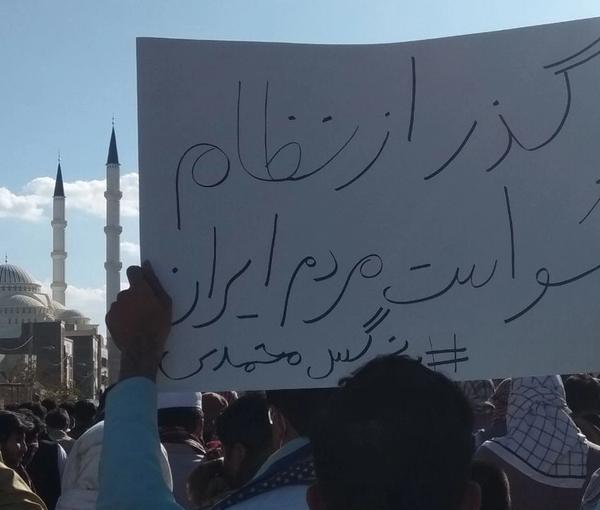 گذر از نظام
خواست مردم ایران
# نرگس محمدی